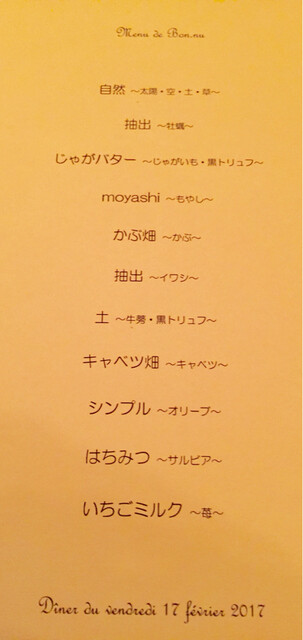 Menu de Bon.nu
自然 ～太陽・空・土・草～
抽出 ～牡蠣～
じゃがバター ～じゃがいも・黒トリュフ～
moyashi ～もやし～
かぶ畑 ～かぶ～
抽出 ～イワシ～
土 ～牛蒡・黒トリュフ～
キャベツ畑 ～キャベツ～
シンプル ～オリーブ～
はちみつ ～サルビア～
いちごミルク ～苺～
Dîner du vendredi 17 février 2017